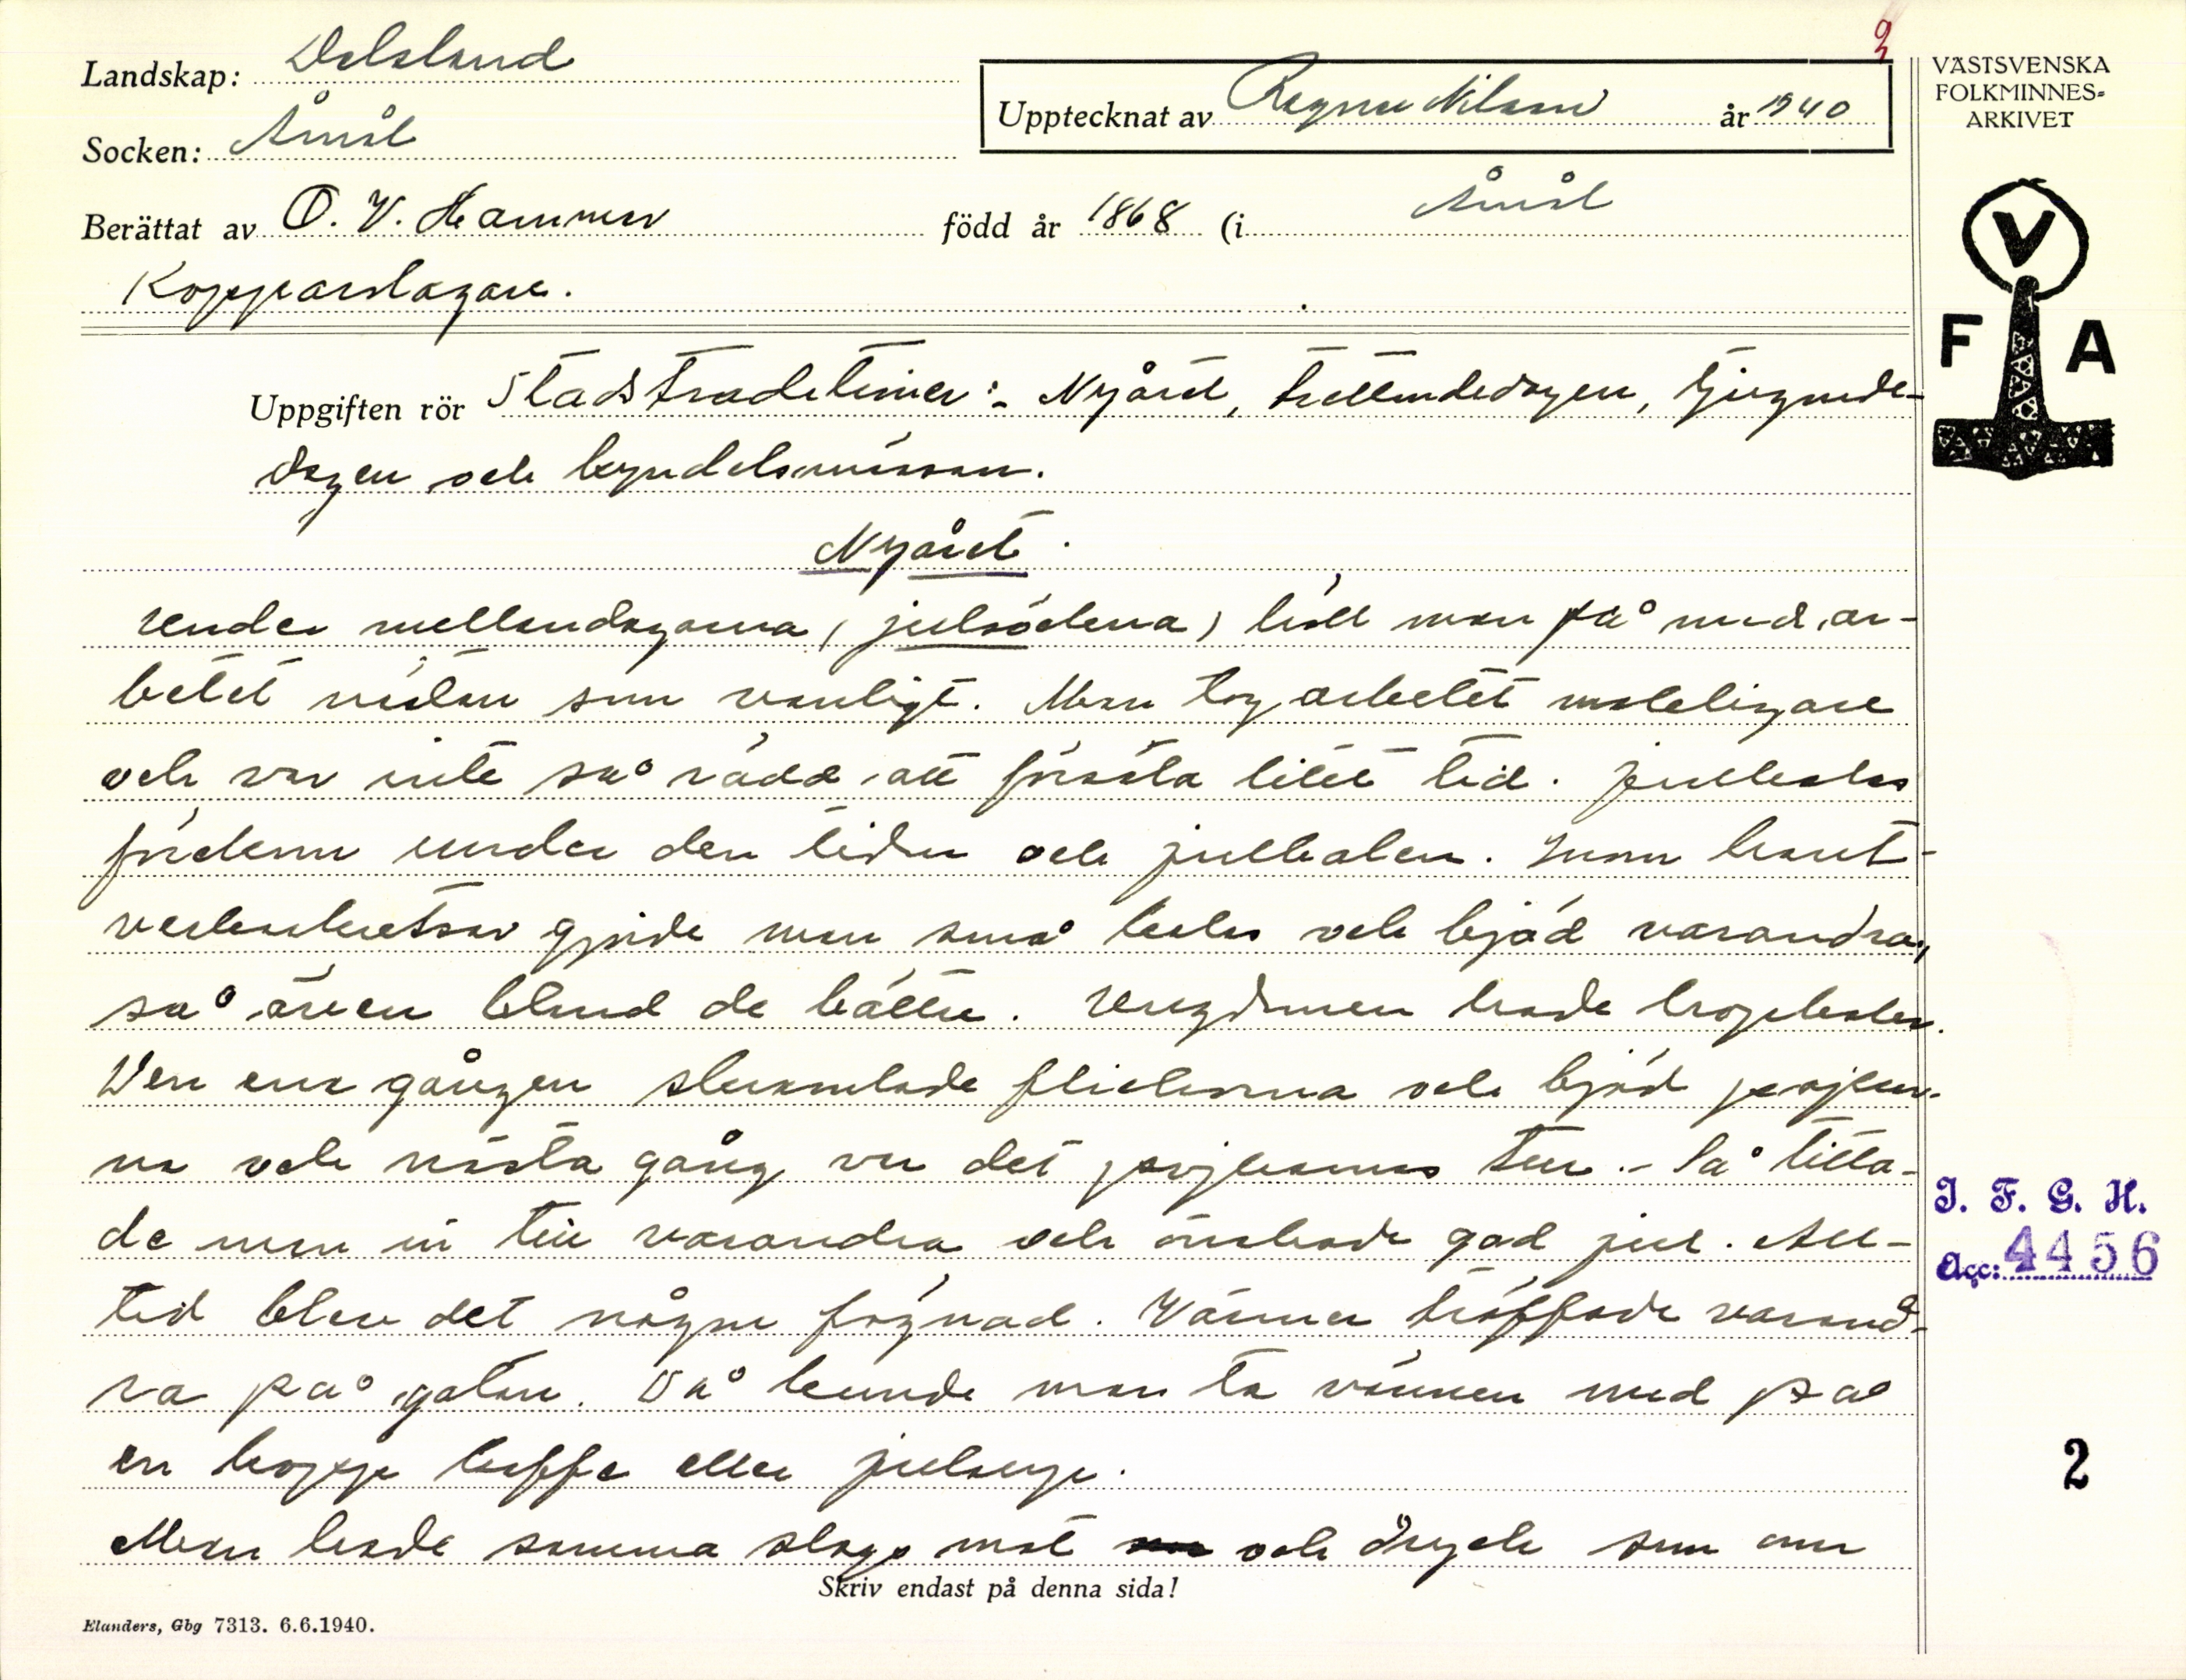 3
Landskap: Dalsland
Socken: Åmål
Upptecknat av Ragnar Nilsson år 1940
Berättat av O. V. Hammar född år 1868 (i Åmål
Kopparslagare.
VÄSTSVENSKA
FOLKMINNES-
ARKIVET
V
F A
Uppgiften rör Stadstraditioner:- Nyåret, trettondedagen, tjugonde-
dagen och kyndelsmässan.
Nyåret.
Under mellandagarna (julsökena) höll man på med ar-
betet nästan som vanligt. Man tog arbetet makligare
och var inte så rädd att försaka litet tid. Julkalas
förekom under den tiden och julbalen. Inom hant-
verkarkretsar gjorde man små kalas och bjöd varandra,
så även bland de bättre. Ungdomen hade hopkalas.
Den ena gången skramlade flickorna och bjöd pojkar-
na och nästa gång var det pojkarnas tur.- Så titta-
de man in till varandra och önskade god jul. All-
tid blev det någon fögnad. Vänner träffade varand-
ra på gatan. Då kunde man ta vännen med på
en kopp kaffe eller julsup.
Man hade samma slags mat och dryck som om
Skriv endast på denna sida!
I. F. G. H.
Acc: 4456
2
Elanders, Gbg 7313. 6.6.1940.